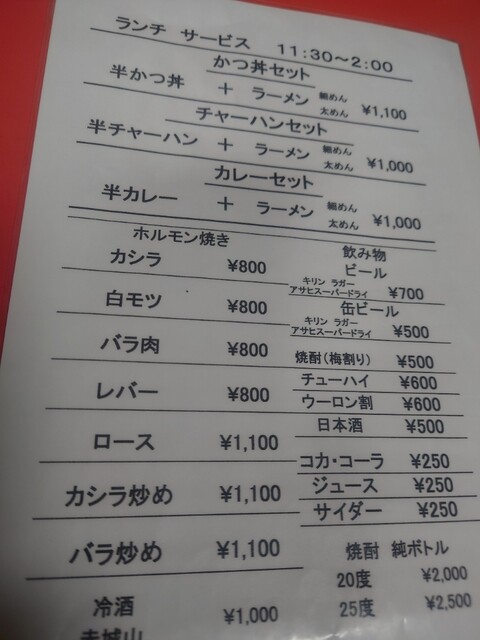 ランチ サービス 11:30〜2:00
かつ丼セット
半かつ丼 + ラーメン 細めん 太めん ¥1,100
チャーハンセット
半チャーハン + ラーメン 細めん 太めん ¥1,000
カレーセット
半カレー + ラーメン 細めん 太めん ¥1,000
ホルモン焼き
カシラ ¥800
白モツ ¥800
バラ肉 ¥800
レバー ¥800
ロース ¥1,100
カシラ炒め ¥1,100
バラ炒め ¥1,100
冷酒 ¥1,000
赤城山
飲み物
ビール
キリン ラガー
アサヒスーパードライ ¥700
缶ビール
キリン ラガー
アサヒスーパードライ ¥500
焼酎(梅割り) ¥500
チューハイ ¥600
ウーロン割 ¥600
日本酒 ¥500
コカ・コーラ ¥250
ジュース ¥250
サイダー ¥250
焼酎 純ボトル
20度 ¥2,000
25度 ¥2,500